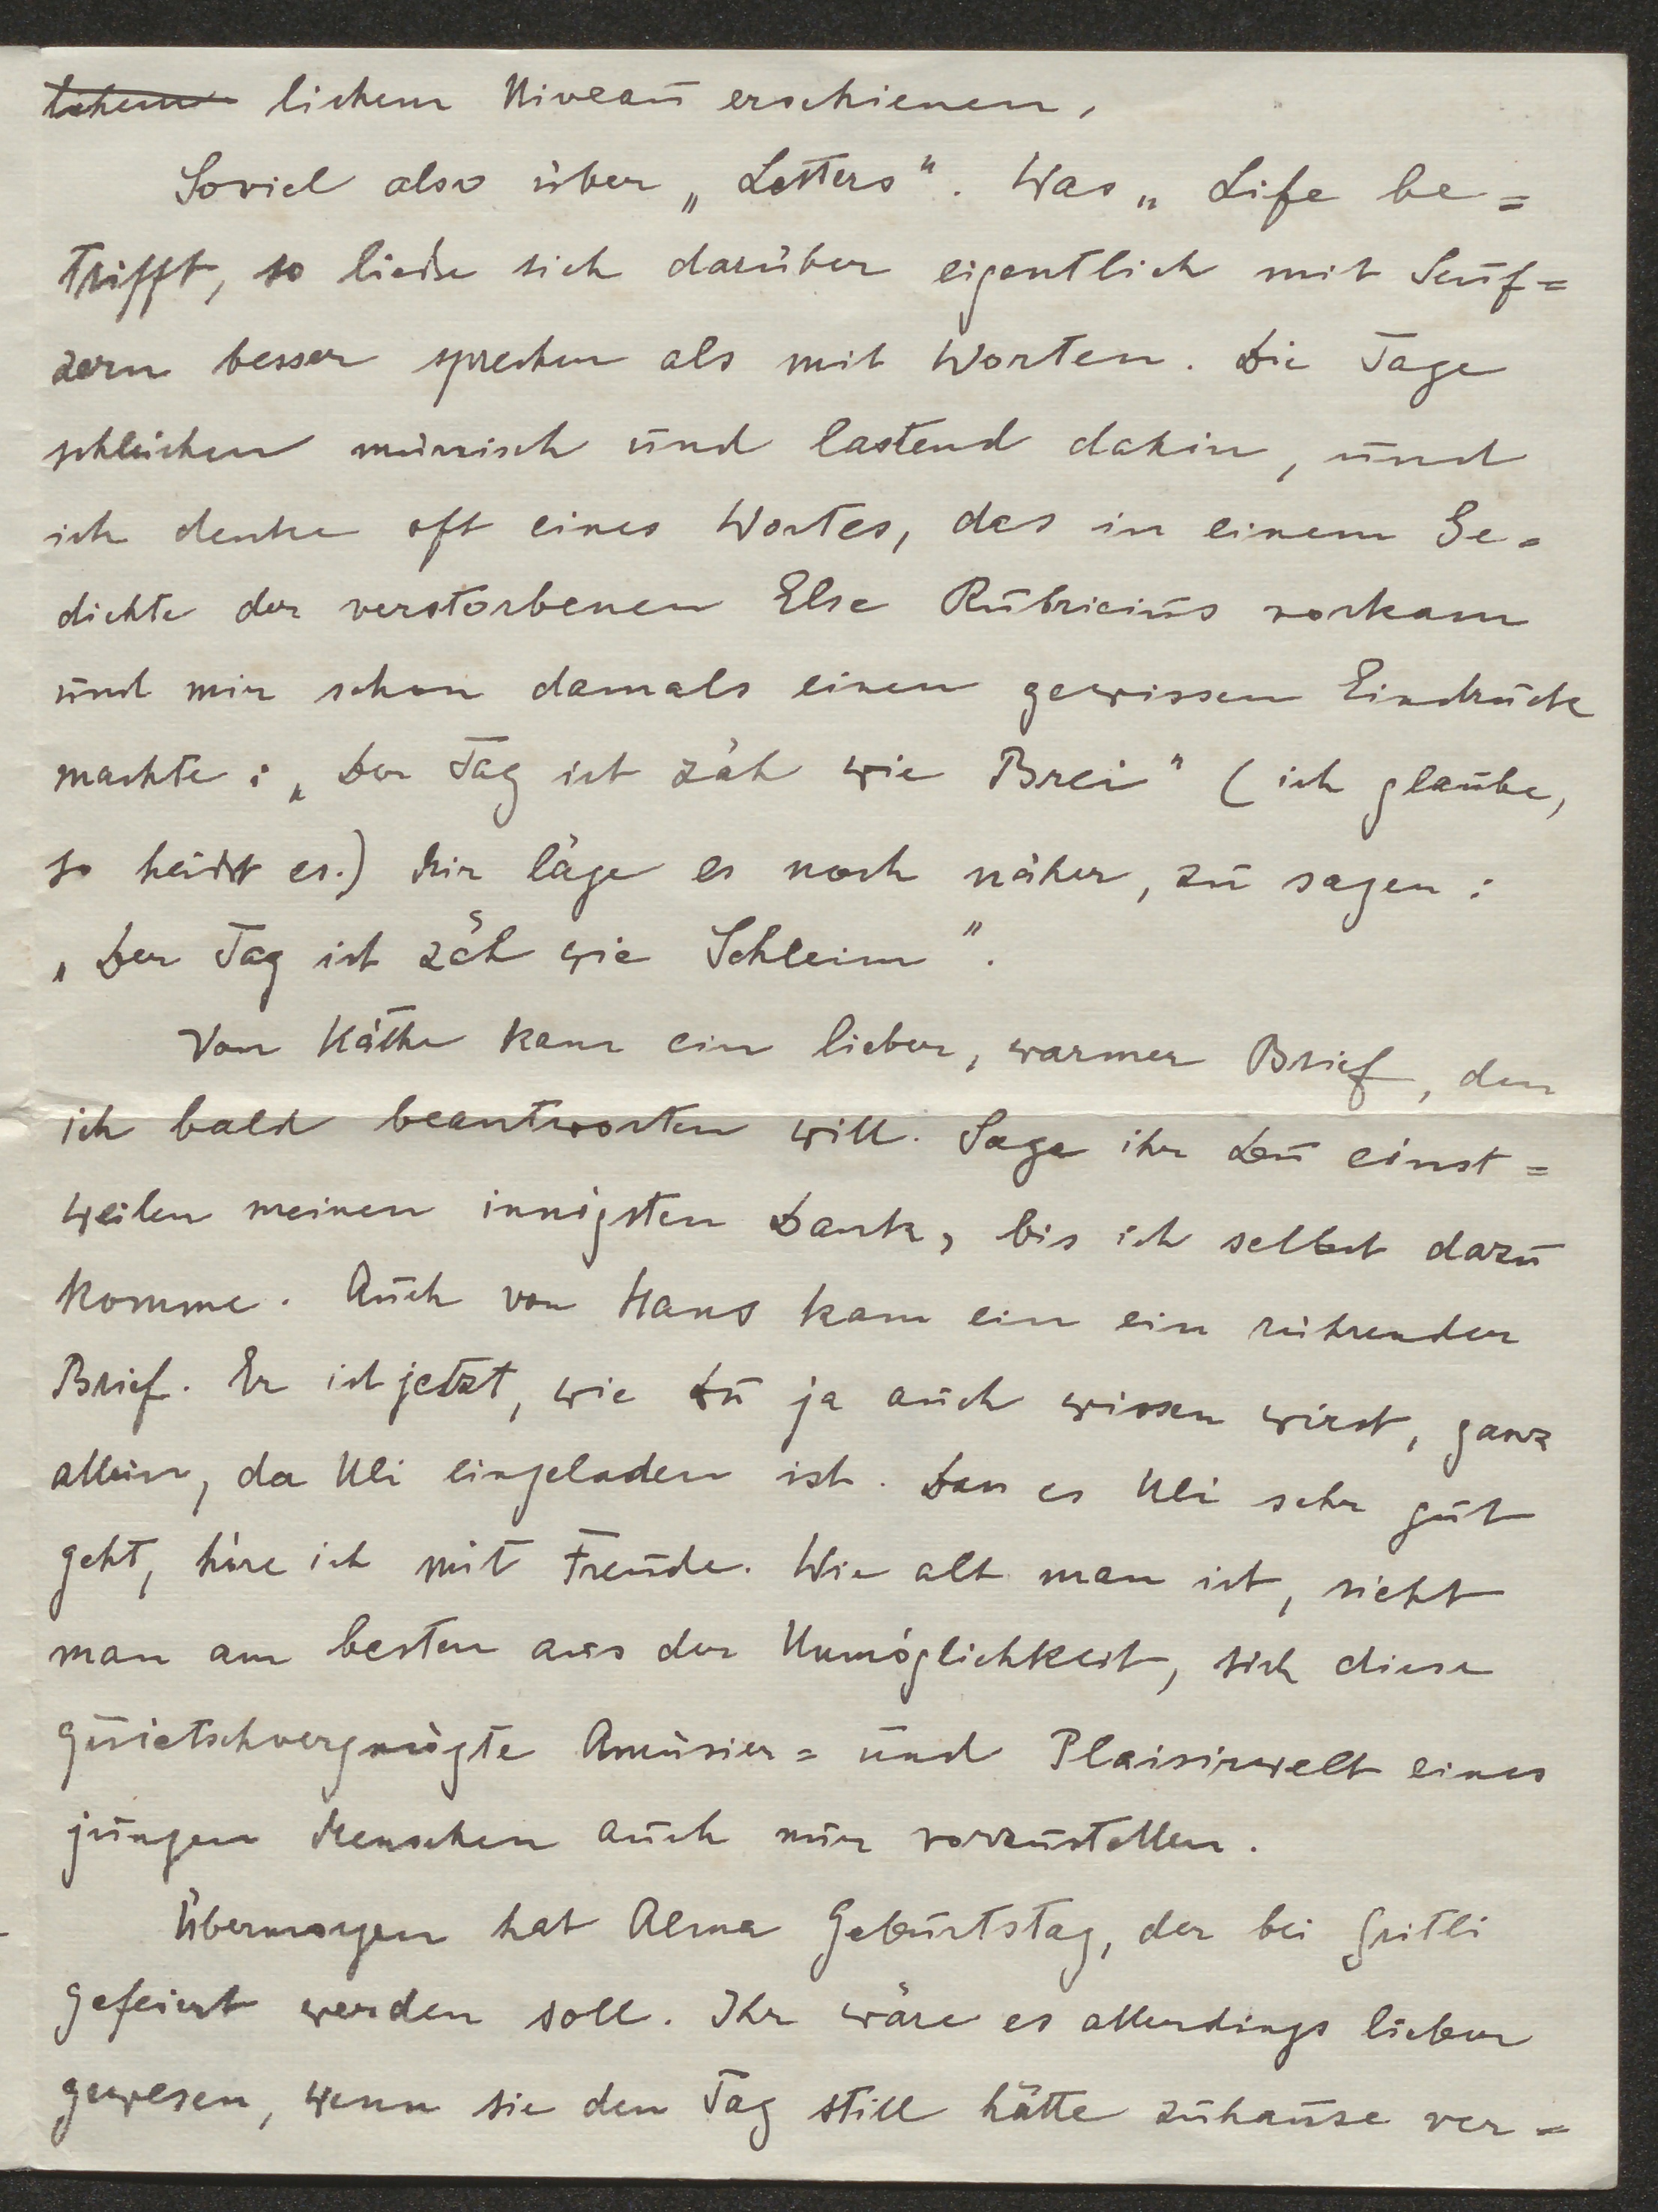 lichem Niveau erschienen.
Soviel also über „Letters". Was „Life be=
trifft, so ließe sich darüber eigentlich mit Seuf=
zern besser sprechen als mit Worten. Die Tage
schleichen mürrisch und lastend dahin, und
ich denke oft eines Wortes, das in einem Ge=
dichte der verstorbenen Else Rubricius vorkam
und mir schon damals einen gewissen Eindruck
machte: „Der Tag ist zäh wie Brei" (ich glaube,
so heißt es.) Mir läge es noch näher, zu sagen:
„Der Tag ist zäh wie Schleim".
Von Käthe kam ein lieber, warmer Brief, den
ich bald beantworten will. Sage ihr Du einst=
weilen meinen innigsten Dank, bis ich selbst dazu
komme. Auch von Hans kam ein ein rührender
Brief. Er ist jetzt, wie Du ja auch wissen wirst, ganz
allein, da Uli eingeladen ist. Dass es Uli sehr gut
geht, höre ich mit Freude. Wie alt man ist, sieht
man am besten aus der Unmöglichkeit, sich diese
quietschvergnügte Amüsier= und Plaisirwelt eines
jungen Menschen auch nur vorzustellen.
Übermorgen hat Alma Geburtstag, der bei Gritli
gefeiert werden soll. Ihr wäre es allerdings lieber
gewesen, wenn sie den Tag still hätte zuhause ver=